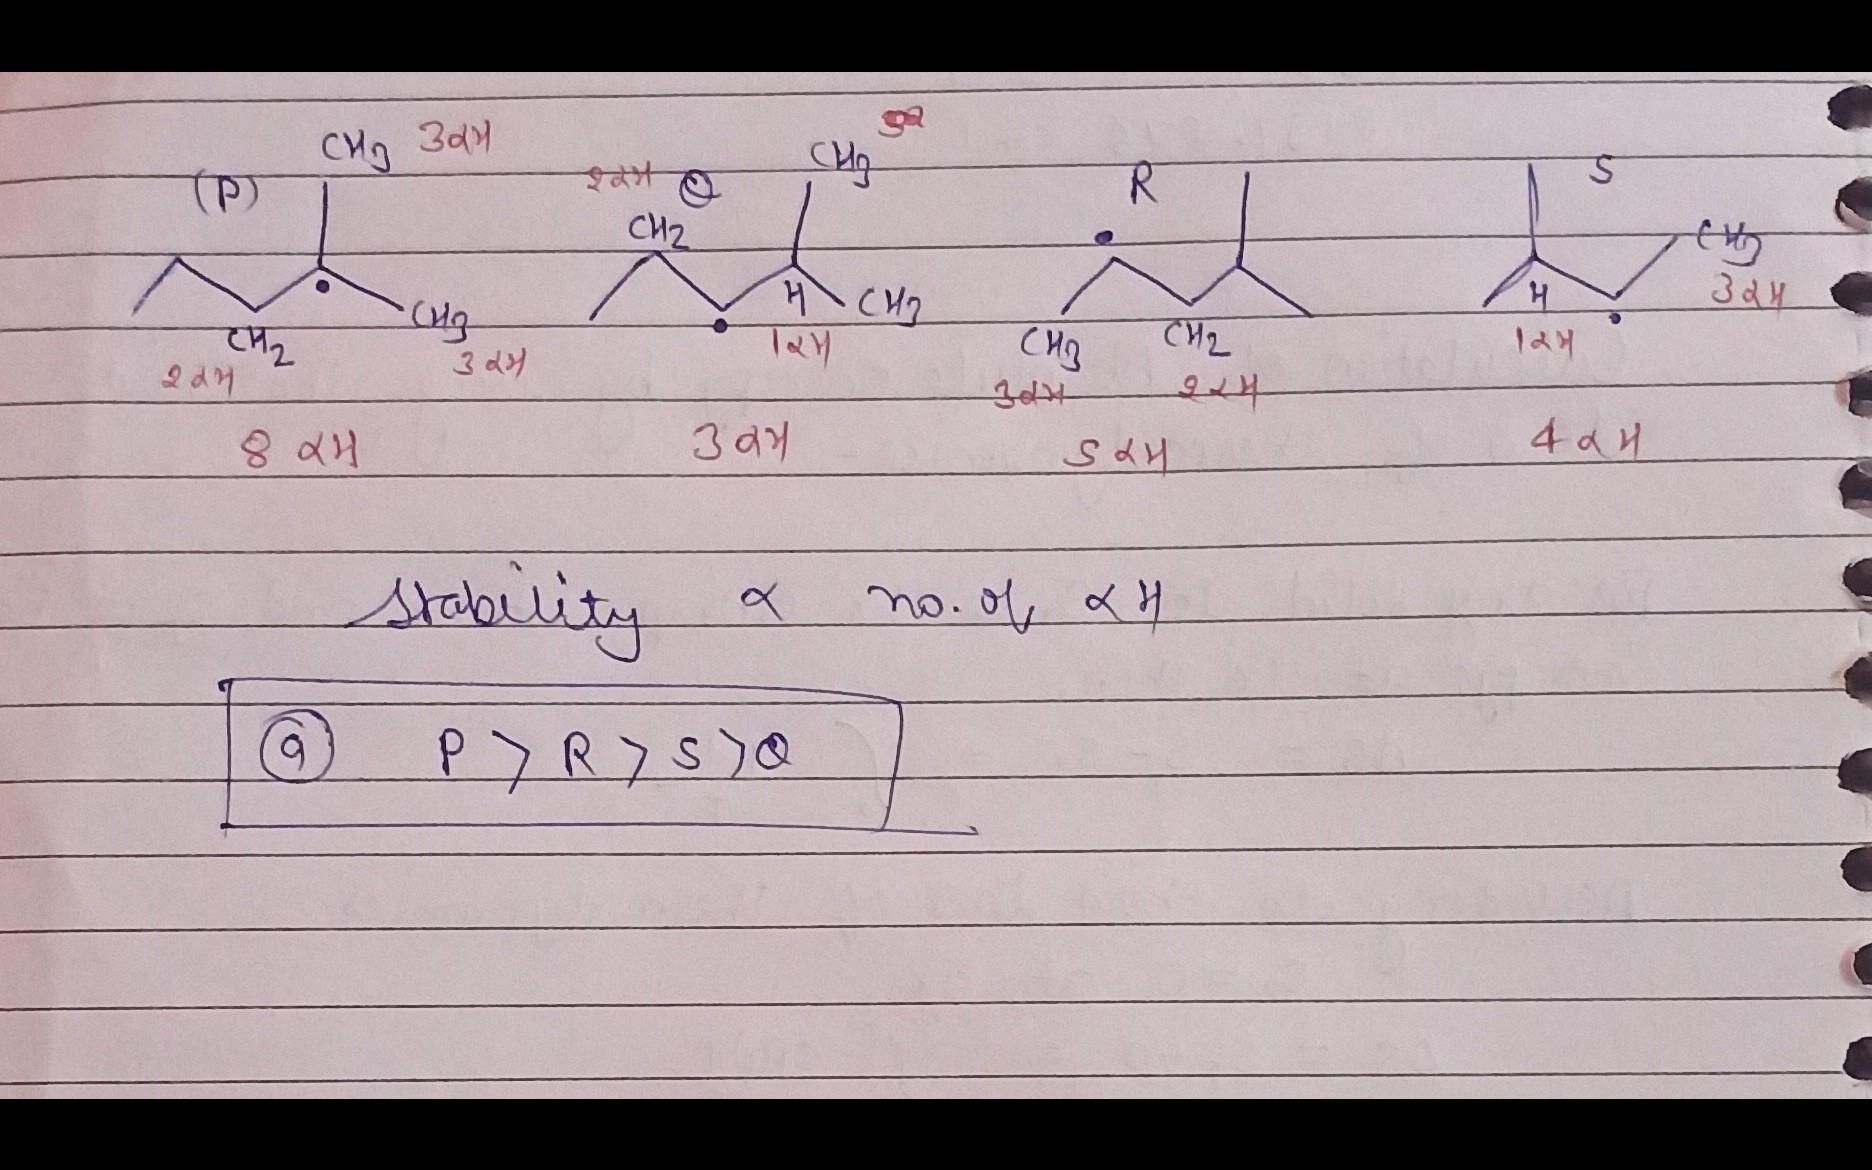 CH3 3αH
(P)
CH2
2αH
CH3
3αH
8 αH
2αH Q
CH2
CH3
H
CH3
1αH
3αH
R
CH3
CH2
3αH
2αH
5αH
S
CH3
3αH
H
1αH
4αH
Stability α no. of αH
a P > R > S > Q